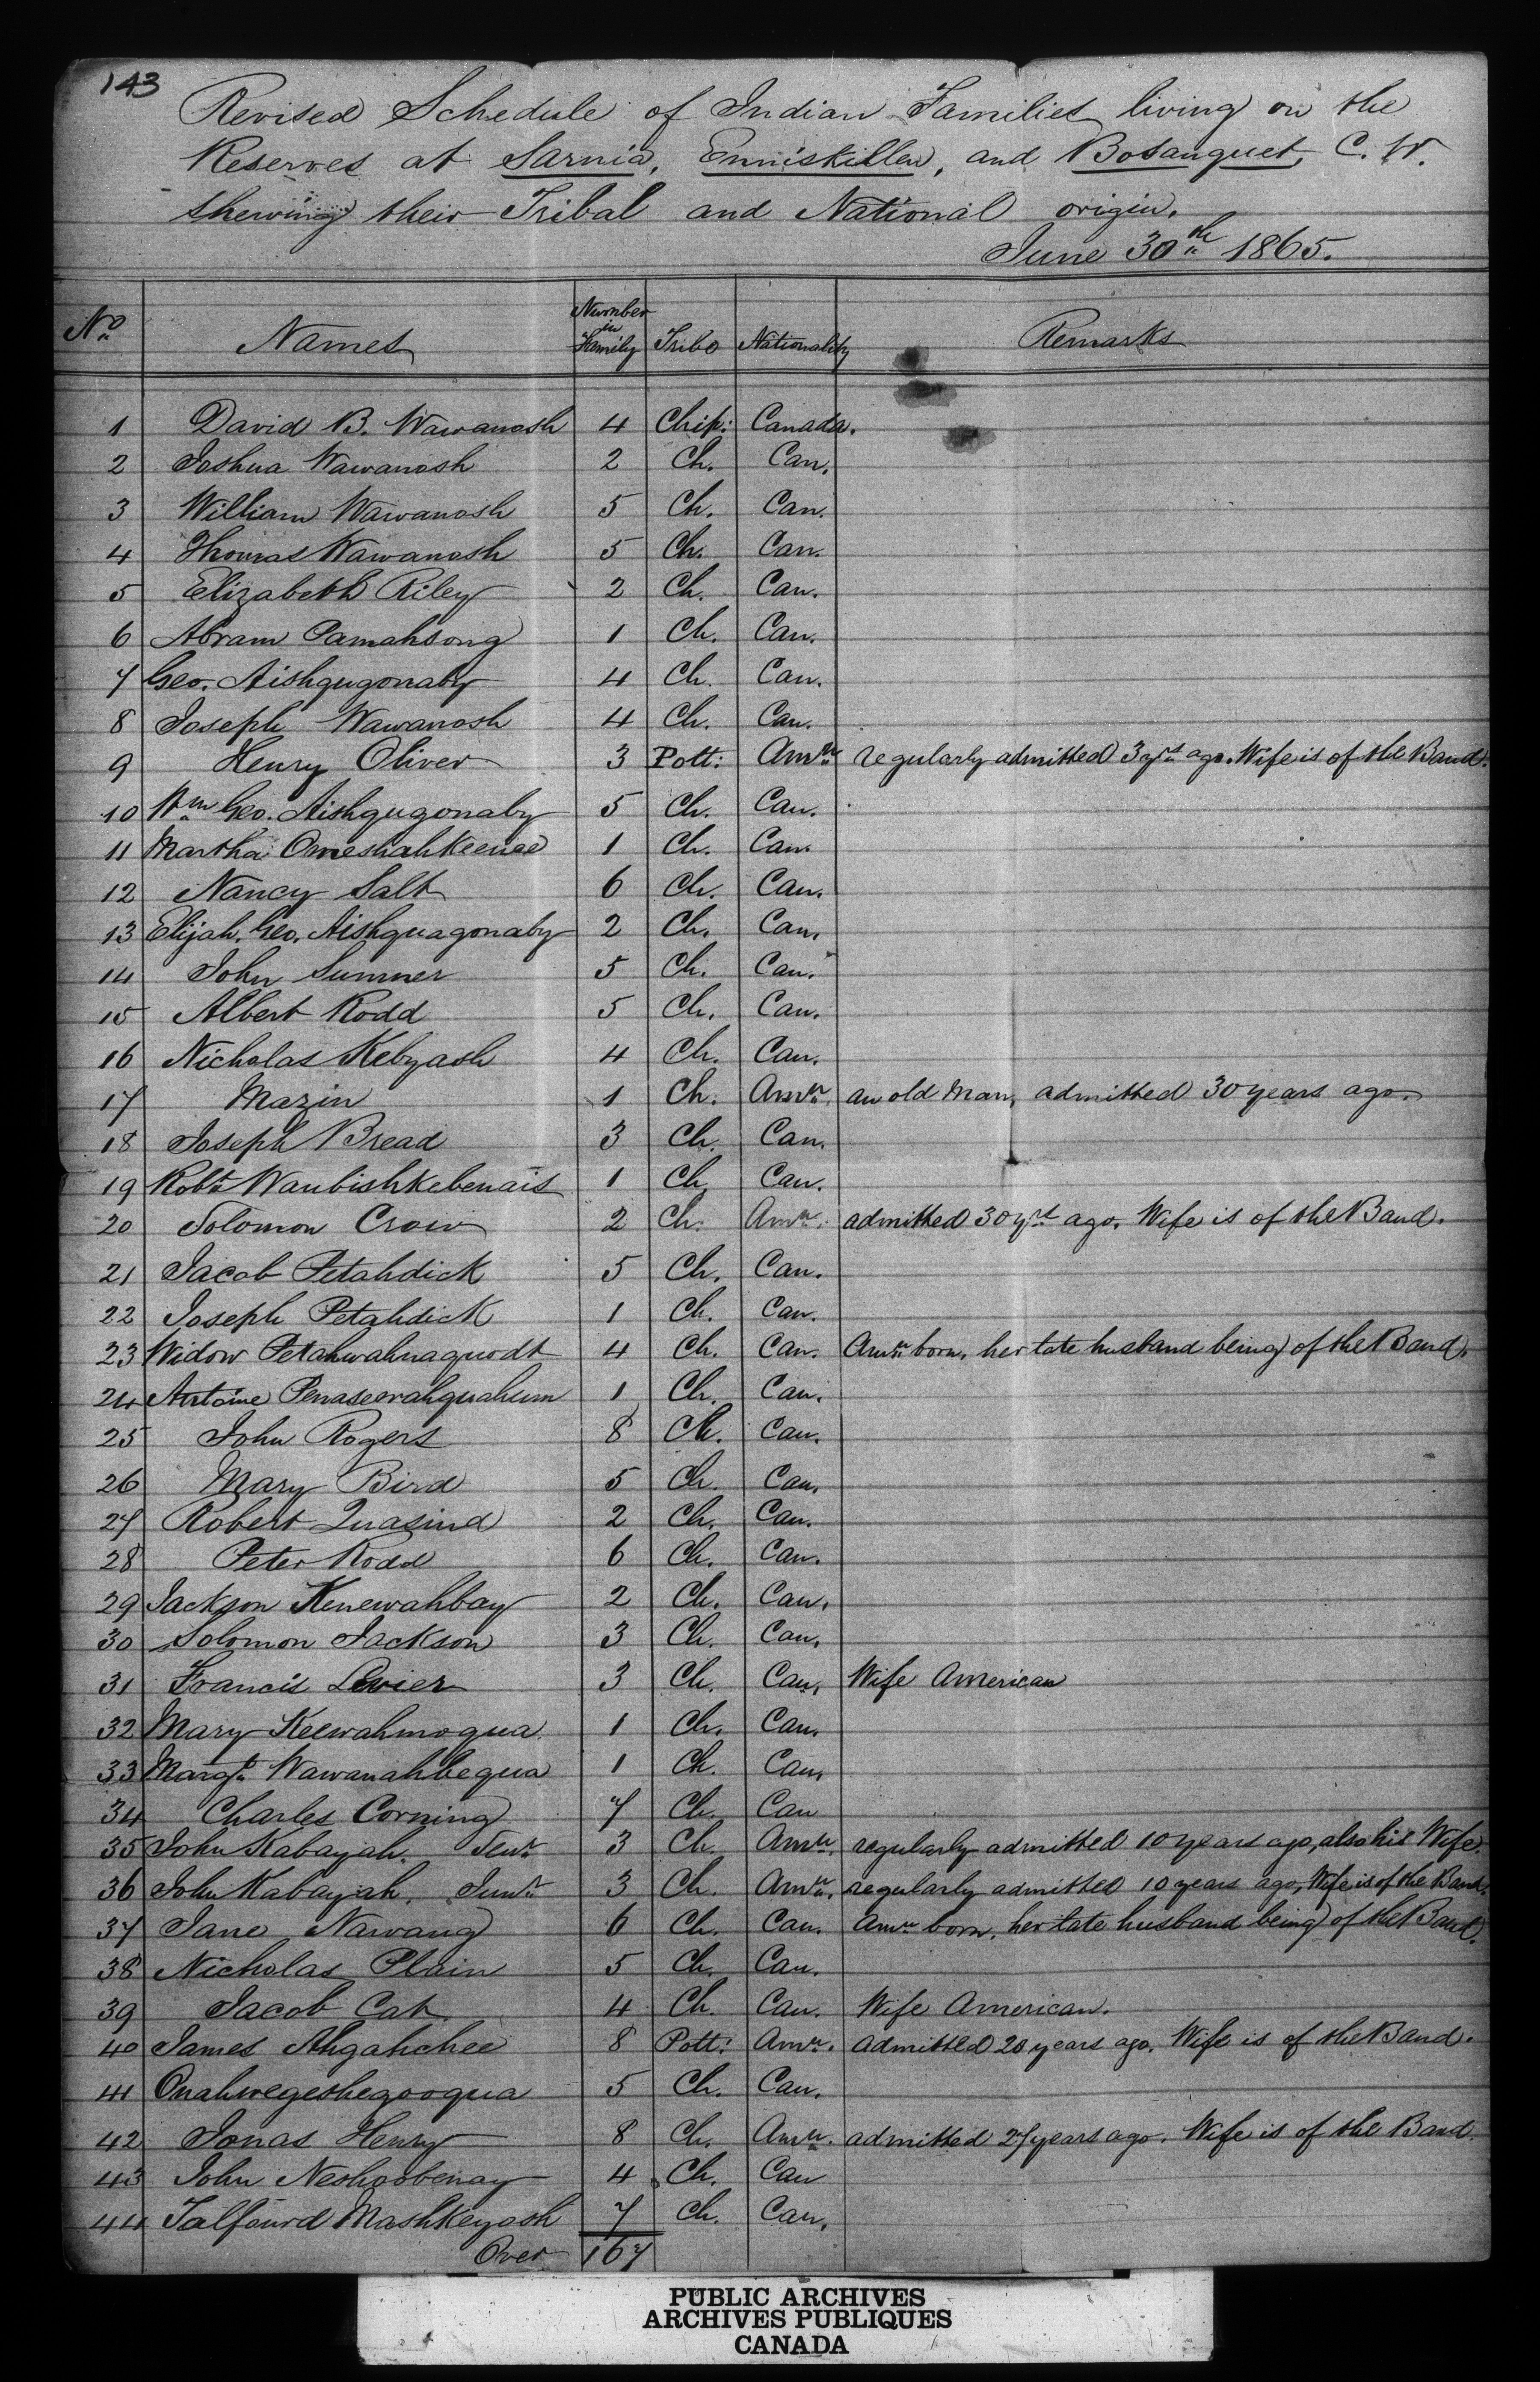 143
Revised Schedule of Indian Families living on the
Reserves at Sarnia, Enniskillen, and Bosanquet, C. W.
shewing their Tribal and National origin.
June 30th 1865.
No Names Number in Family Tribe Nationality Remarks
1 David B. Wawanosh 4 Chip: Canada.
2 Joshua Wawanosh 2 Ch. Can.
3 William Wawanosh 5 Ch. Can.
4 Thomas Wawanosh 5 Ch. Can.
5 Elizabeth Riley 2 Ch. Can.
6 Abram Pamahsong 1 Ch. Can.
7 Geo. Aishqugonaby 4 Ch. Can.
8 Joseph Wawanosh 4 Ch. Can.
9 Henry Oliver 3 Pott: Amn regularly admitted 3 yrs ago. Wife is of the Band.
10 Wm Geo. Aishqugonaby 5 Ch. Can.
11 Martha Omeshahkeenee 1 Ch. Can.
12 Nancy Salt 6 Ch. Can.
13 Elijah. Geo. Aishquagonaby 2 Ch. Can.
14 John Sumner 5 Ch. Can.
15 Albert Rodd 5 Ch. Can.
16 Nicholas Kebyash 4 Ch. Can.
17 Mazin 1 Ch. Amn. an old Man, admitted 30 years ago.
18 Joseph Bread 3 Ch. Can.
19 Robt Waubishkebenais 1 Ch. Can.
20 Solomon Crow 2 Ch. Amn. admitted 30 yrs ago. Wife is of the Band.
21 Jacob Petahdick 5 Ch. Can.
22 Joseph Petahdick 1 Ch. Can.
23 Widow Petahwahnaquodt 4 Ch. Can. Amn born, her late husband being of the Band.
24 Antoine 1 Ch. Can.
25 John Rogers 8 Ch. Can.
26 Mary Bird 5 Ch. Can.
27 Robert Quasind 2 Ch. Can.
28 Peter Rodd 6 Ch. Can.
29 Jackson Kenewahbay 2 Ch. Can.
30 Solomon Jackson 3 Ch. Can.
31 Francis Levier 3 Ch. Can. Wife American
32 Mary Keewahmoqua 1 Ch. Can.
33 Margt Wawanahbequa 1 Ch. Can.
34 Charles Corning 7 Ch. Can
35 John Kabayah. Senr 3 Ch. Amn. regularly admitted 10 years ago, also his Wife.
36 John Kabayah. Junr 3 Ch. Amn. regularly admitted 10 years ago, Wife is of the Band.
37 Jane Nawang 6 Ch. Can. Amn born, her late husband being of the Band.
38 Nicholas Plain 5 Ch. Can.
39 Jacob Cat 4 Ch. Can. Wife American.
40 James Ahgahchee 8 Pott: Amn. admitted 20 years ago. Wife is of the Band.
41 Onahwegeshegooqua 5 Ch. Can.
42 Jonas Henry 8 Ch. Amn. admitted 27 years ago. Wife is of the Band.
43 John Neshoobenay 4 Ch. Can
44 Talfourd Mashkeyash 7 Ch. Can.
Over 167
PUBLIC ARCHIVES
ARCHIVES PUBLIQUES
CANADA